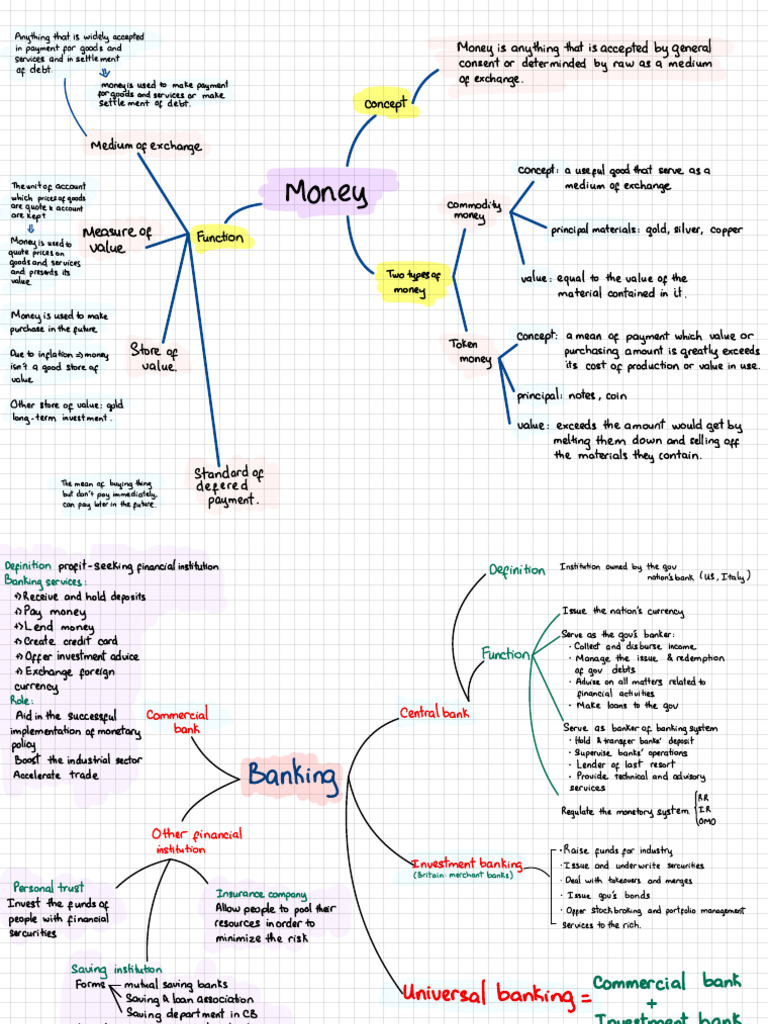 Money
concept
Money is anything that is accepted by general
consent or determinded by raw as a medium
of exchange.
Function
Medium of exchange
Anything that is widely accepted
in payment for goods and
services and in settlement
of debt.
money is used to make payment
for goods and services or make
settlement of debt.
Measure of
value
The unit of account
which prices of goods
are quote & account
are kept
Money is used to
quote prices on
goods and services
and presents its
value
Store of
value.
Money is used to make
purchase in the future.
Due to inflation ⇒ money
isn't a good store of
value
Other store of value: gold
long-term investment.
Standard of
defered
payment.
The mean of buying thing
but don't pay immediately,
can pay later in the future.
Two types of
money
commodity
money
concept: a useful good that serve as a
medium of exchange
principal materials: gold, silver, copper
value: equal to the value of the
material contained in it.
Token
money
concept: a mean of payment which value or
purchasing amount is greatly exceeds
its cost of production or value in use.
principal: notes, coin
value: exceeds the amount would get by
melting them down and selling off
the materials they contain.
Banking
Commercial
bank
Definition profit-seeking financial institution
Banking services:
→ Receive and hold deposits
→ Pay money
→ Lend money
→ Create credit card
→ Offer investment advice
→ Exchange foreign
currency
Role:
Aid in the successful
implementation of monetary
policy
Boost the industrial sector
Accelerate trade
Other financial
institution
Personal trust
Invest the funds of
people with financial
securities
Insurance company
Allow people to pool their
resources in order to
minimize the risk
Saving institution
Forms
mutual saving banks
Saving & loan association
Saving department in CB
Central bank
Definition
Institution owned by the gov
nation's bank (US, Italy)
Function
Issue the nation's currency
Serve as the gov's banker:
· Collect and disburse income
· Manage the issue & redemption
of gov debts
· Advise on all matters related to
financial activities
· Make loans to the gov
Serve as banker of banking system
· Hold & transfer banks' deposit
· Supervise banks' operations
· Lender of last resort
· Provide technical and advisory
services
Regulate the monetary system
RR
IR
OMO
Investment banking
(Britain: merchant banks)
· Raise funds for industry
· Issue and underwrite sercurities
· Deal with takeovers and merges
· Issue gov's bonds
· Offer stockbroking and portfolio management
services to the rich.
Universal banking =
Commercial bank
+
Investment bank